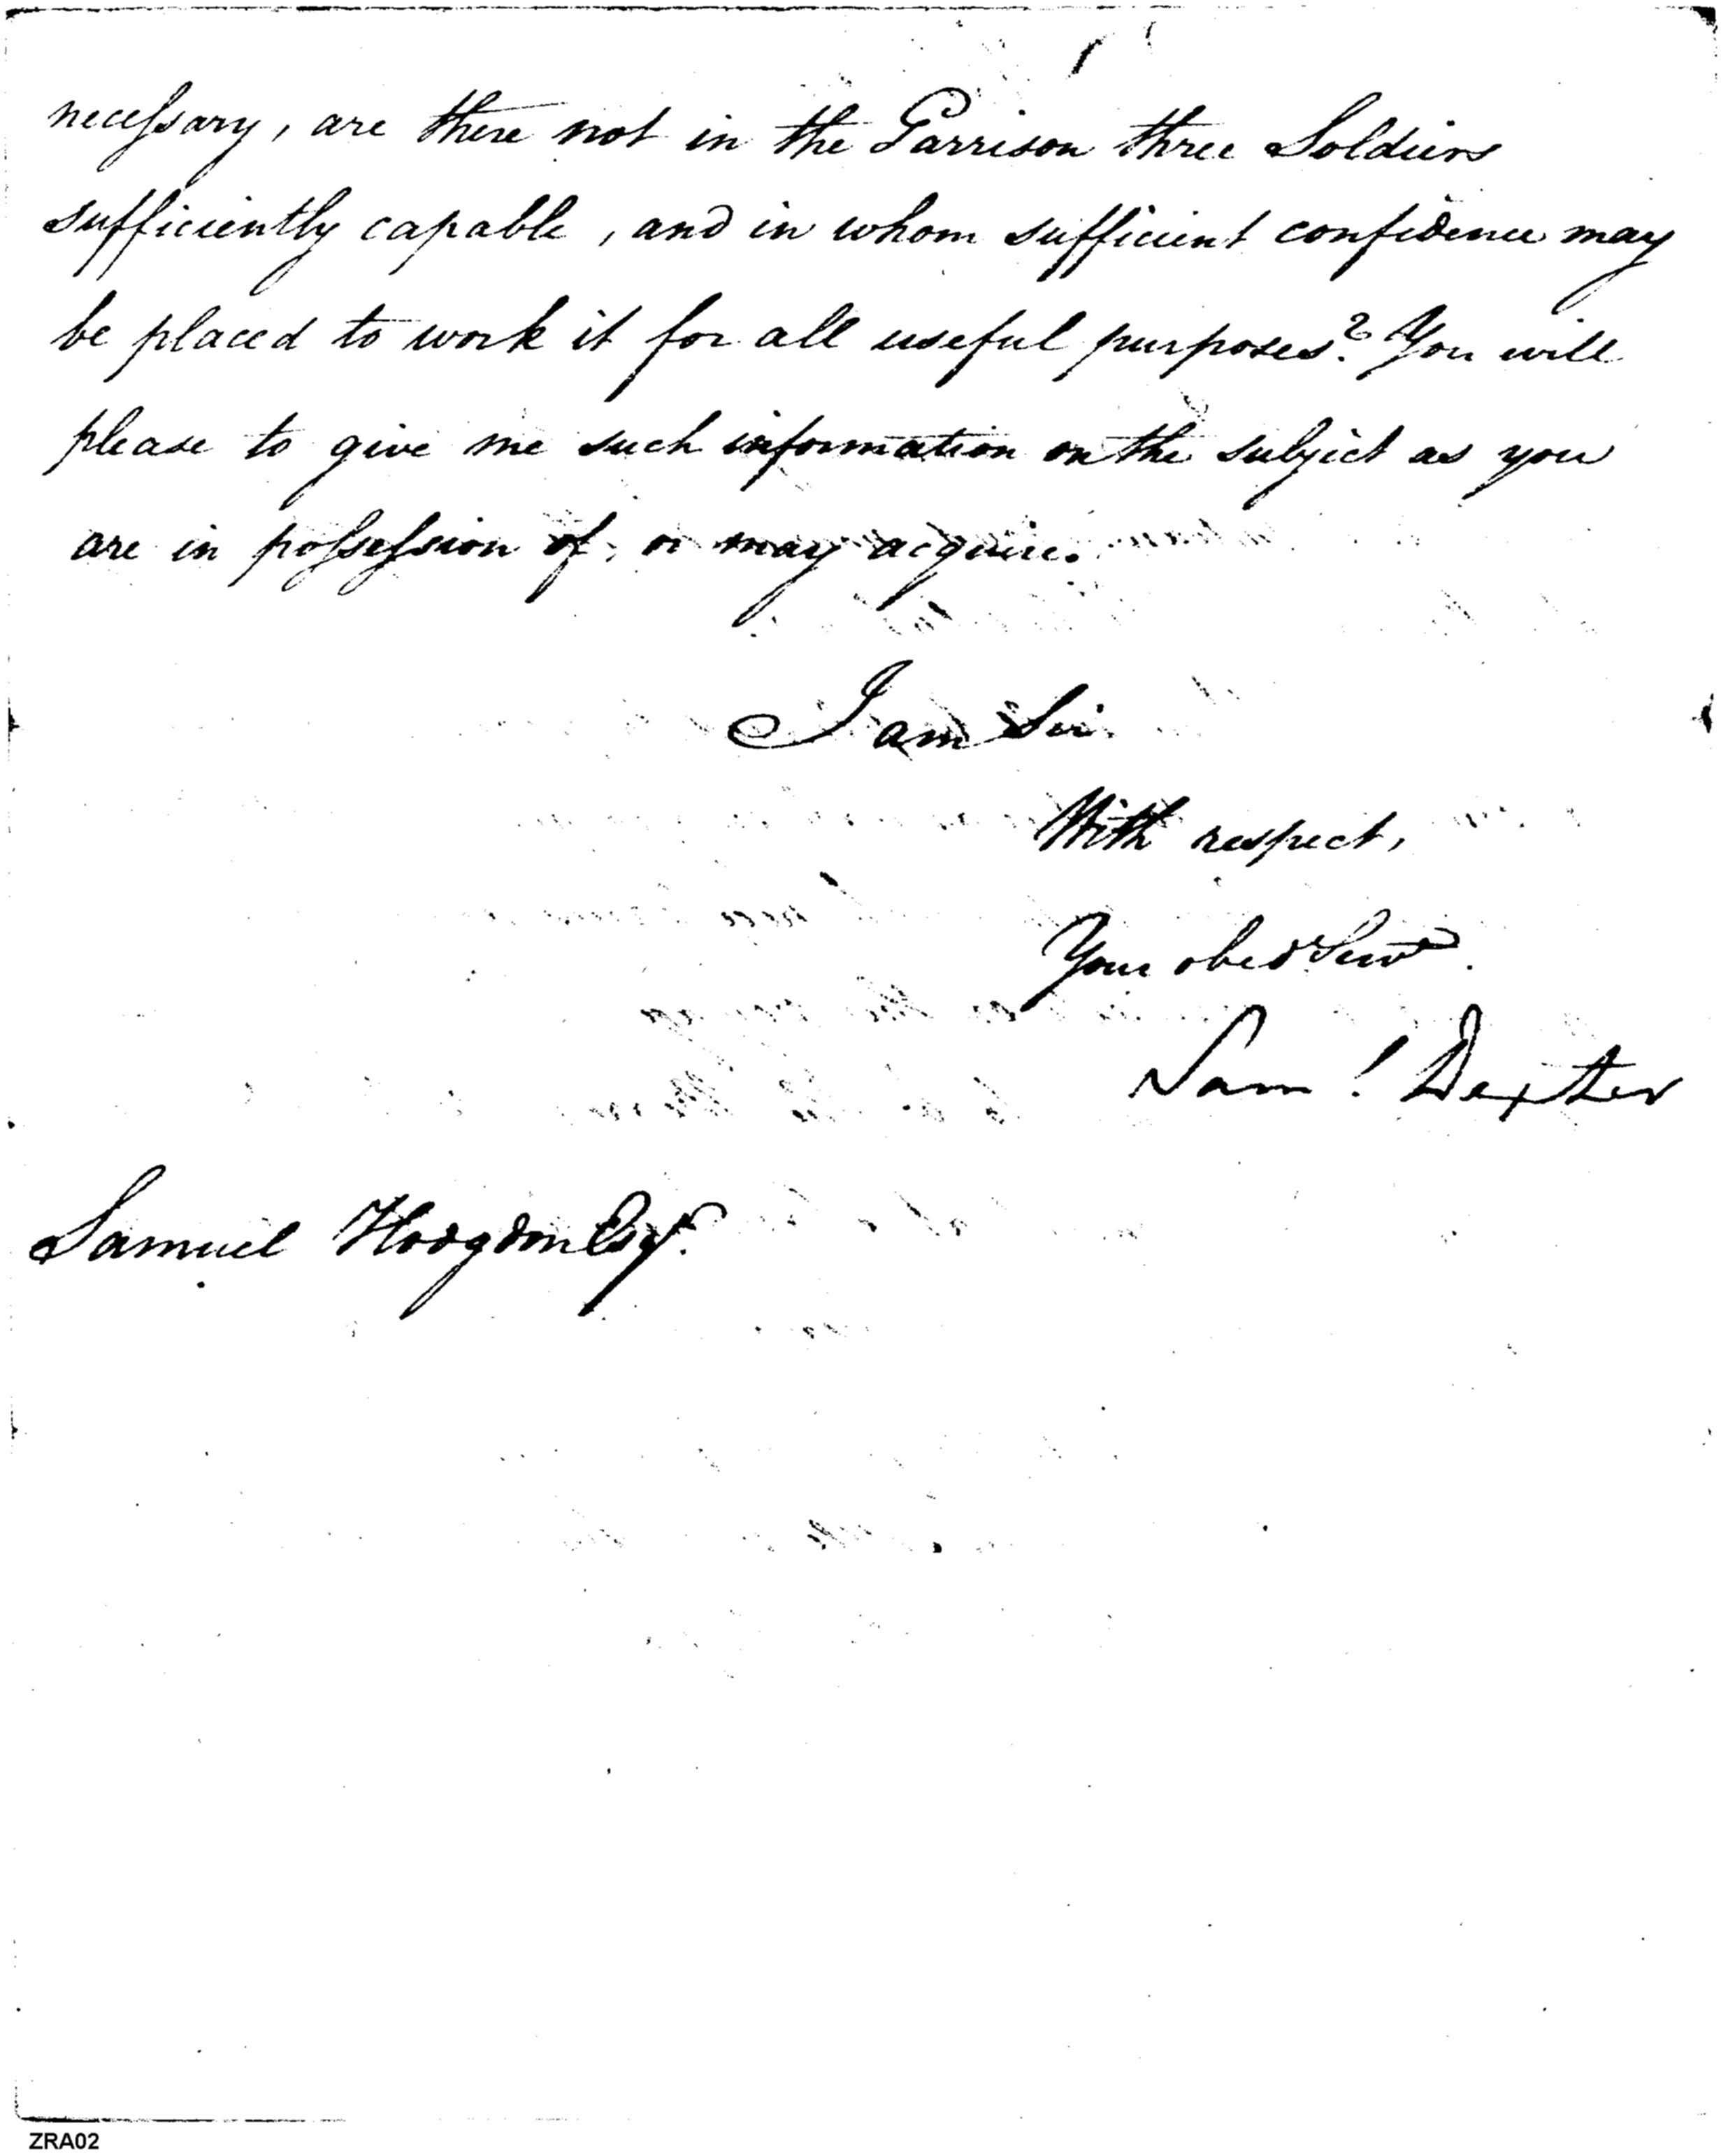 necessary, are there not in the Garrison three Soldiers
sufficiently capable, and in whom sufficient confidence may
be placed to work it for all useful purposes? You will
please to give me such information on the subject as you
are in possession of, or may acquire.
I am Sir
With respect,
Your obed Servt
Saml Dexter
Samuel Hodgdon Esqr.
ZRA02